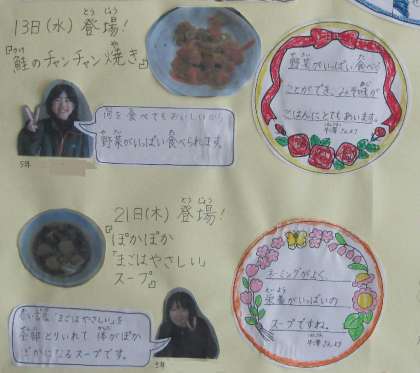 13日(水) 登場!
とうじょう
『鮭のチャンチャン焼き』
何を食べてもおいしいから
野菜がいっぱい食べられます
5年
野菜がいっぱい食べる
ことができ、みそ味が
ごはんにとてもあいます。
21日(木) 登場!
とうじょう
『ぽかぽか
「まごはやさしい」
スープ』
「まごはやさしい」を
全部とりいれて 体がぽか
ぽかになるスープです。
5年
ネーミングがよく、
栄養がいっぱいの
スープですね。